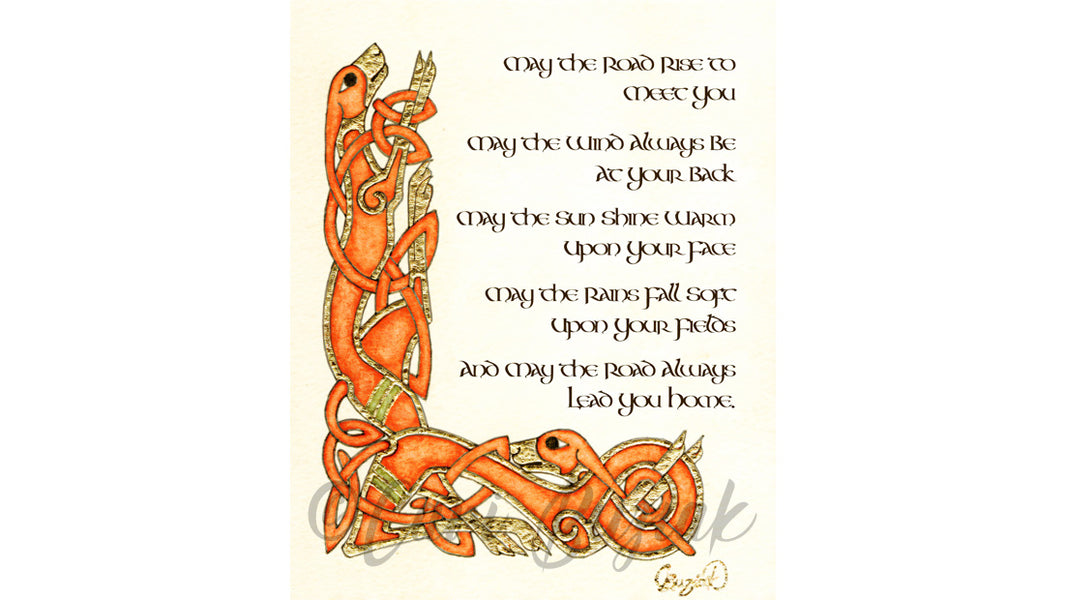 May the Road Rise to
Meet You
May the Wind Always Be
at Your Back
May the Sun Shine Warm
Upon Your Face
May the Rains Fall Soft
Upon Your Fields
and May the Road Always
Lead You Home.